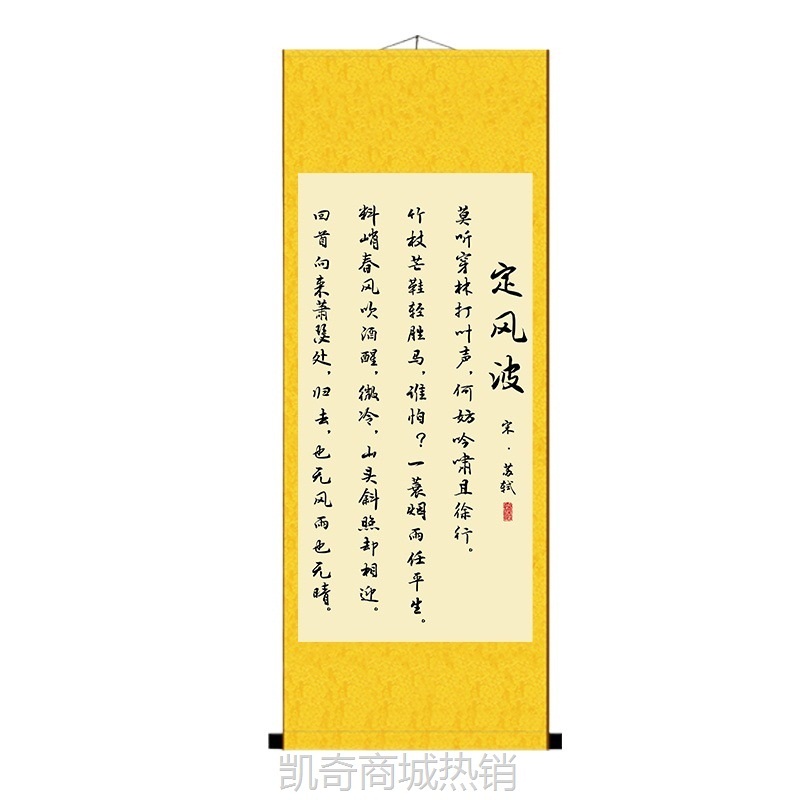 定风波
宋·苏轼
莫听穿林打叶声,何妨吟啸且徐行。
竹杖芒鞋轻胜马,谁怕?一蓑烟雨任平生。
料峭春风吹酒醒,微冷,山头斜照却相迎。
回首向来萧瑟处,归去,也无风雨也无晴。
凯奇商城热销